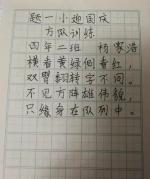 题一小迎国庆
方队训练
四年二班 杨家浩
横看黄绿侧看红,
双臂翻转字不同。
不见方阵雄伟貌,
只缘身在队列中。